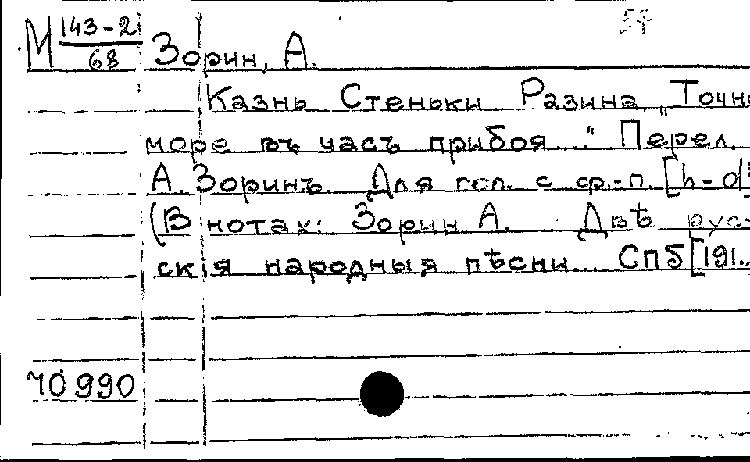 57
М 143-2
68
Зорин, А.
Казнь Стеньки Разина „Точно
море въ часъ прибоя..." Перел.
А. Зоринъ. Для гол. с ср.-п. [h-d
(В нотах: Зорин А. Двѣ рус-
скія народныя пѣсни... СПб [191..
70990